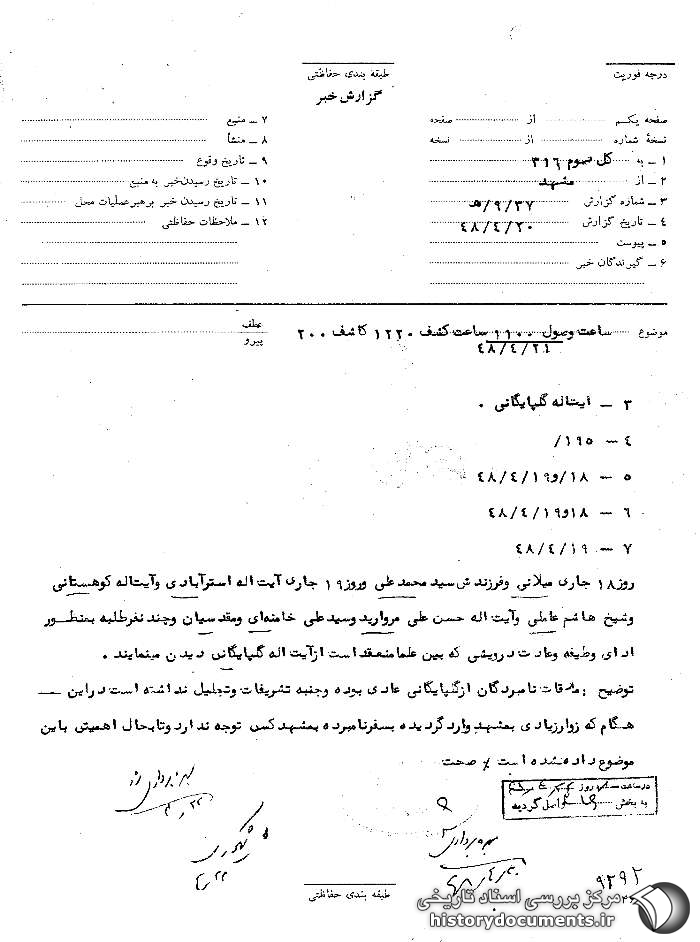 درجه فوریت
طبقه بندی حفاظتی
گزارش خبر
صفحه یکم از صفحه
نسخهٔ شماره از نسخه
۱ ـ به کل سوم ۳۱۶
۲ ـ از مشهد
۳ ـ شماره گزارش ۹/۳۷/ه‍
۴ ـ تاریخ گزارش ۴۸/۴/۲۰
۵ ـ پیوست
۶ ـ گیرندگان خبر
۷ ـ منبع
۸ ـ منشأ
۹ ـ تاریخ وقوع
۱۰ ـ تاریخ رسیدن خبر به منبع
۱۱ ـ تاریخ رسیدن خبر برهبر عملیات محل
۱۲ ـ ملاحظات حفاظتی
موضوع ساعت وصول ۱۱۰۰ ساعت کشف ۱۲۲۰ کاشف ۲۰۰
۴۸/۴/۲۱
عطف
پیرو
۳ ـ آیتاله گلپایگانی .
۴ ـ ۱۹۵/
۵ ـ ۱۸/و۴۸/۴/۱۹
۶ ـ ۱۸و۴۸/۴/۱۹
۷ ـ ۴۸/۴/۱۹
روز ۱۸ جاری میلانی وفرزندش سید محمد علی وروز ۱۹ جاری آیت اله استرآبادی وآیتاله کوهستانی
وشیخ هاشم عاملی وآیت اله حسن علی مروارید وسید علی خامنه‌ای ومقدسیان وچند نفر طلبه بمنظور
ادای وظیفه وعادت درویشی که بین علما منعقد است از آیت اله گلپایگانی دیدن مینمایند .
توضیح : ملاقات نامبردگان از گلپایگانی عادی بوده وجنبه تشریفات وتجلیل نداشته است در این ـــ
هنگام که زوار زیادی بمشهد وارد گردیده بسفر نامبرده بمشهد کسی توجه ندارد وتا بحال اهمیتی باین
موضوع داده نشده است ٪ صحت
در ساعت روز
به بخش واصل گردید
بهره برداری
۴/۲۲
۹۲۹۲
طبقه بندی حفاظتی
مرکز بررسی اسناد تاریخی
historydocuments.ir